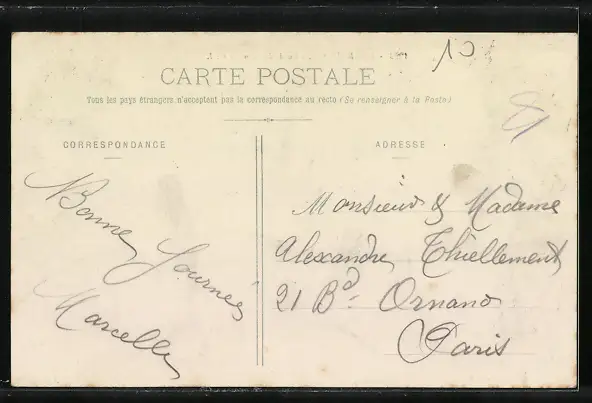 10
CARTE POSTALE
Tous les pays étrangers n'acceptent pas la correspondance au recto (Se renseigner à la Poste)
CORRESPONDANCE
Bonne
Journée
Marcelle
ADRESSE
Monsieur & Madame
Alexandre Thiellement
21 Bd. Ornano
Paris